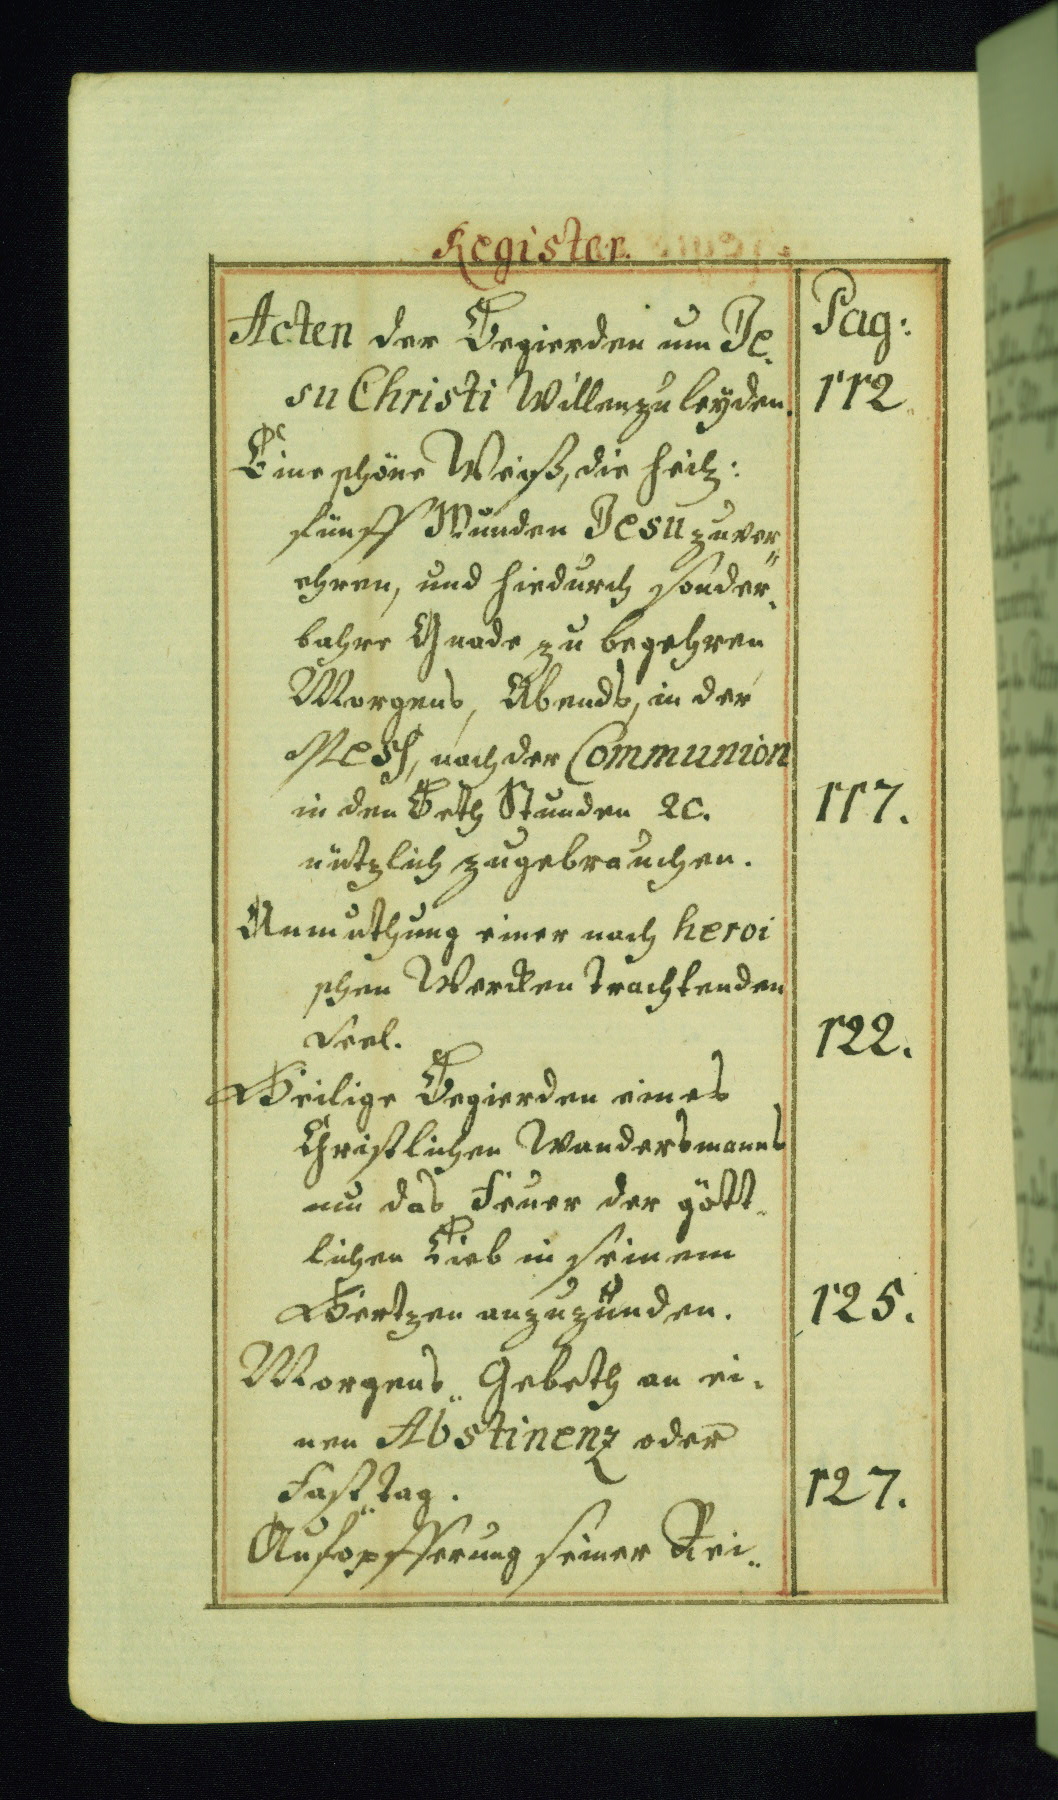 Register.
Acten der Begierden um Je-
Pag:
su Christi Willen zu leyden.
112.
Eine schöne Weiß, die heil:
fünff Wunden Jesu zu ver„
ehren, und hiedurch sonder-
bahre Gnade zu begehren
Morgens, Abends, in der
Mess, nach der Communion
in den Beth Stunden ꝛc.
117.
nützlich zugebrauchen.
Anmuthung einer nach heroi
schen Wercken trachtenden
Seel.
122.
Heilige Begierden eines
Christlichen Wandersmanns
um das Feuer der gött-
lichen Lieb in seinem
Hertzen anzuzünden.
125.
Morgens„ Gebeth an ei-
nen Abstinenz oder
Fast„tag.
127.
Aufopfferung seiner Rei„